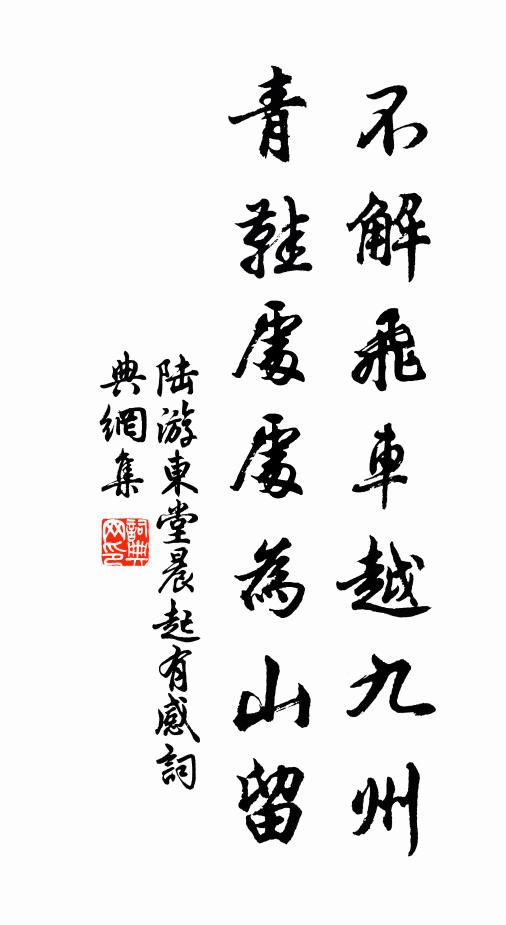 不解飛車越九州
青鞋處處為山留
陆游東堂晨起有感詞
典網集
詞典
网印